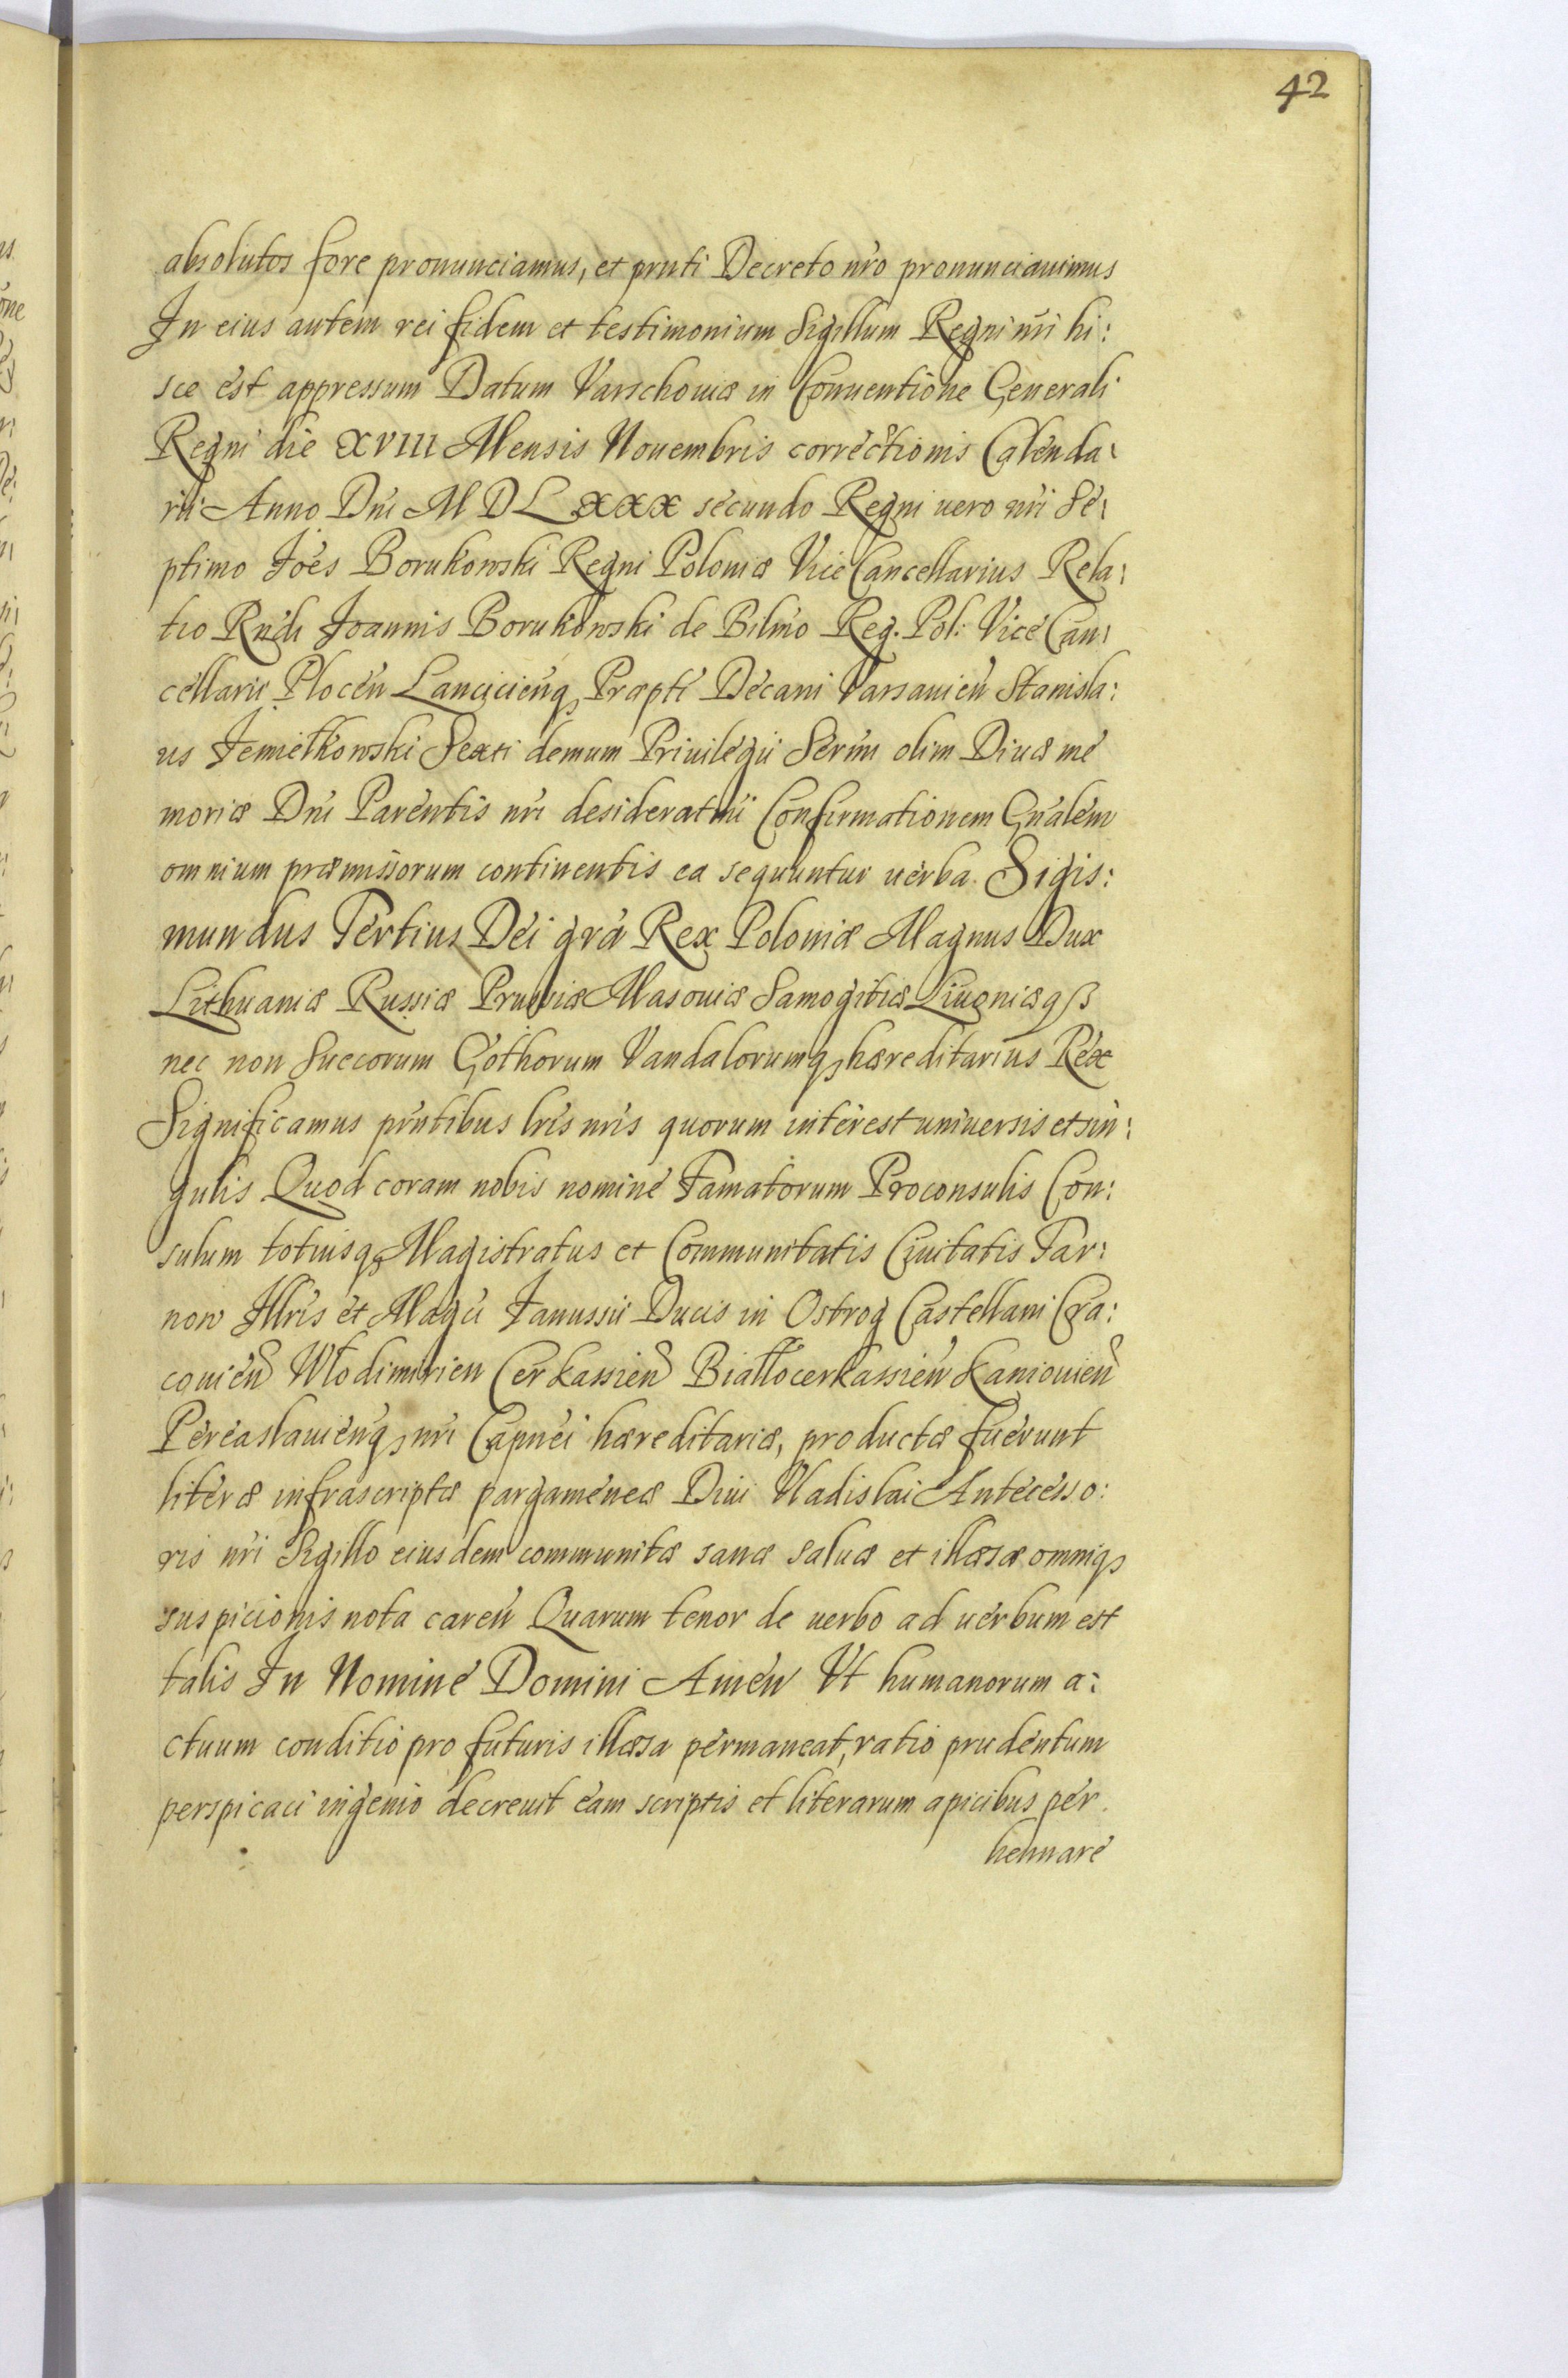 42
absolutos fore pronunciamus, et pnti Decreto nro pronunciauimus
In eius autem rei fidem et testimonium Sigillum Regni nri hi:
sce est appressum Datum Varschouiæ in Conuentione Generali
Regni die XVIII Mensis Nouembris correctionis Calenda:
rii Anno Dni MDLXXX secundo Regni uero nri Se:
ptimo Joes Borukowski Regni Poloniæ Vice Cancellarius Rela:
tio Rndi Joannis Borukowski de Bilino Reg. Pol: Vice Can:
cellarii Plocen Lancicienq Præpti Decani Varsauien Stanisla:
us Jemielkowski Sexti demum Priuilegii Sermi olim Diuæ me
moriæ Dni Parentis nri desideratmi Confirmationem Gnalem
omnium præmissorum continentis ea sequuntur uerba. Sigis:
mundus Tertius Dei gra Rex Poloniæ Magnus Dux
Lithuaniæ Russiæ Prussiæ Masouiæ Samogitiæ Liuoniæqß
nec non Suecorum Gothorum Vandalorumq hæreditarius Rex
Significamus pntibus lris nris quorum interest uniuersis et sin:
gulis Quod coram nobis nomine Famatorum Proconsulis Con:
sulum totiusq Magistratus et Communitatis Ciuitatis Tar:
now Illris et Magci Janussii Ducis in Ostrog Castellani Cra:
couien Wlodimirien Cerkassien Biallocerkassien Kaniouien
Pereaslauienq nri Capnei hæreditariæ, productæ fuerunt
literæ infrascriptæ pargameneæ Diui Vladislai Antecesso:
ris nri Sigillo eiusdem communitæ sanæ saluæ et illæsæ omniq
suspicionis nota caren Quarum tenor de uerbo ad uerbum est
talis In Nomine Domini Amen Vt humanorum a:
ctuum conditio pro futuris illæsa permaneat, ratio prudentum
perspicaci ingenio decreuit eam scriptis et literarum apicibus per
hennare